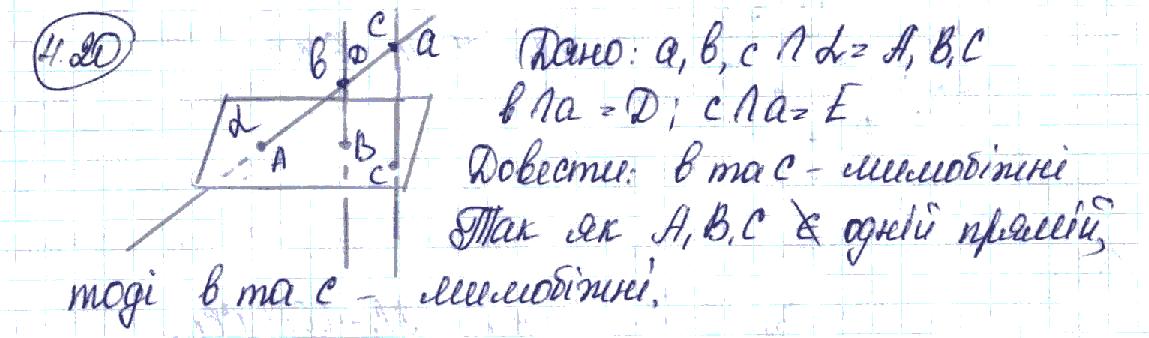 4.20
Дано: a, b, c ∩ α = A, B, C
b ∩ a = D; c ∩ a = E
Довести: b та c – мимобіжні
Так як A, B, C ∉ одній прямій,
тоді b та c – мимобіжні.
b D c a
α A B C